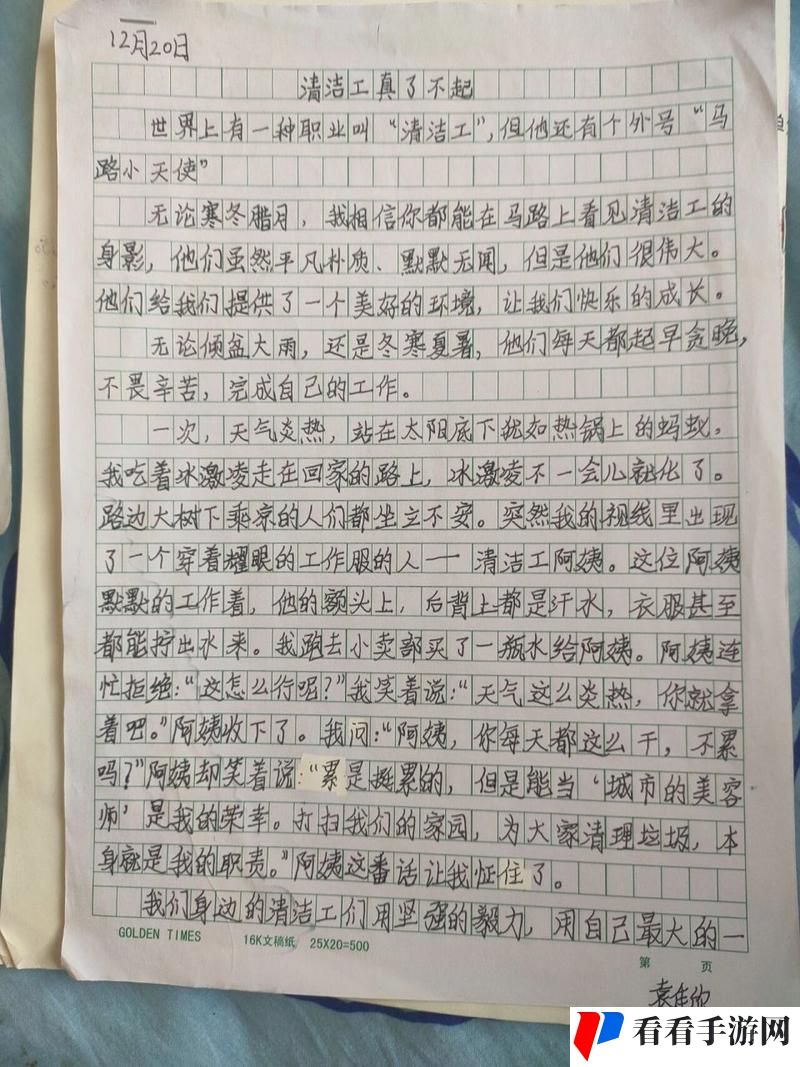 12月20日
清洁工真了不起
世界上有一种职业叫“清洁工”,但他还有个外号“马
路小天使”
无论寒冬腊月，我相信你都能在马路上看见清洁工的
身影，他们虽然平凡朴质、默默无闻，但是他们很伟大。
他们给我们提供了一个美好的环境，让我们快乐的成长。
无论倾盆大雨，还是冬寒夏暑，他们每天都起早贪晚，
不畏辛苦，完成自己的工作。
一次，天气炎热，站在太阳底下犹如热锅上的蚂蚁，
我吃着冰激凌走在回家的路上，冰激凌不一会儿就化了。
路边大树下乘凉的人们都坐立不安。突然我的视线里出现
了一个穿着耀眼的工作服的人——清洁工阿姨。这位阿姨
默默的工作着，他的额头上，后背上都是汗水，衣服甚至
都能拧出水来。我跑去小卖部买了一瓶水给阿姨。阿姨连
忙拒绝：“这怎么行呢？”我笑着说：“天气这么炎热，你就拿
着吧。”阿姨收下了。我问：“阿姨，你每天都这么干，不累
吗？”阿姨却笑着说：“累是挺累的，但是能当‘城市的美容
师’是我的荣幸。打扫我们的家园，为大家清理垃圾，本
身就是我的职责。”阿姨这番话让我怔住了。
我们身边的清洁工们用坚强的毅力，用自己最大的一
GOLDEN TIMES 16K文稿纸 25X20=500
第 页
看看手游网